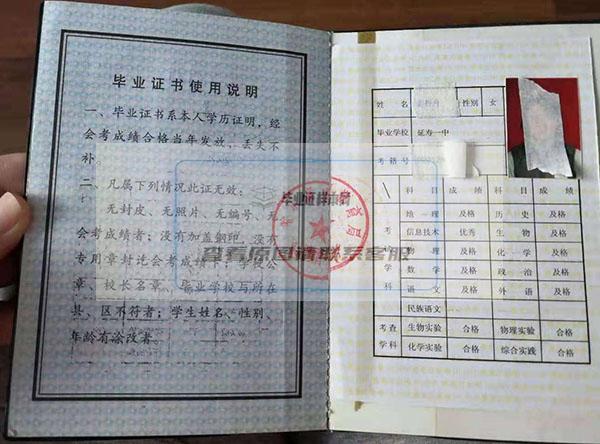 毕业证书使用说明
一、毕业证书系本人学历证明，经
会考成绩合格当年发放，丢失不
补。
二、凡属下列情况此证无效：
无封皮、无照片、无编号、无
会考成绩者；没有加盖钢印、没有
专用章封
章、校长名章、毕业学校与所在
县、区不符者；学生姓名、性别、
年龄有涂改者。
毕业证样本网
查看原图请联系客服
姓 名 性别 女
毕业学校 延寿一中
考籍号
科 目 成 绩 科 目 成 绩
地 理 及格 历 史 及格
考 信息技术 优秀 生 物 及格
物 理 及格 化 学 及格
数 学 及格 政 治 及格
科 语 文 及格 外 语 及格
民族语文
考查 生物实验 合格 物理实验 合格
学科 化学实验 合格 综合实践 合格